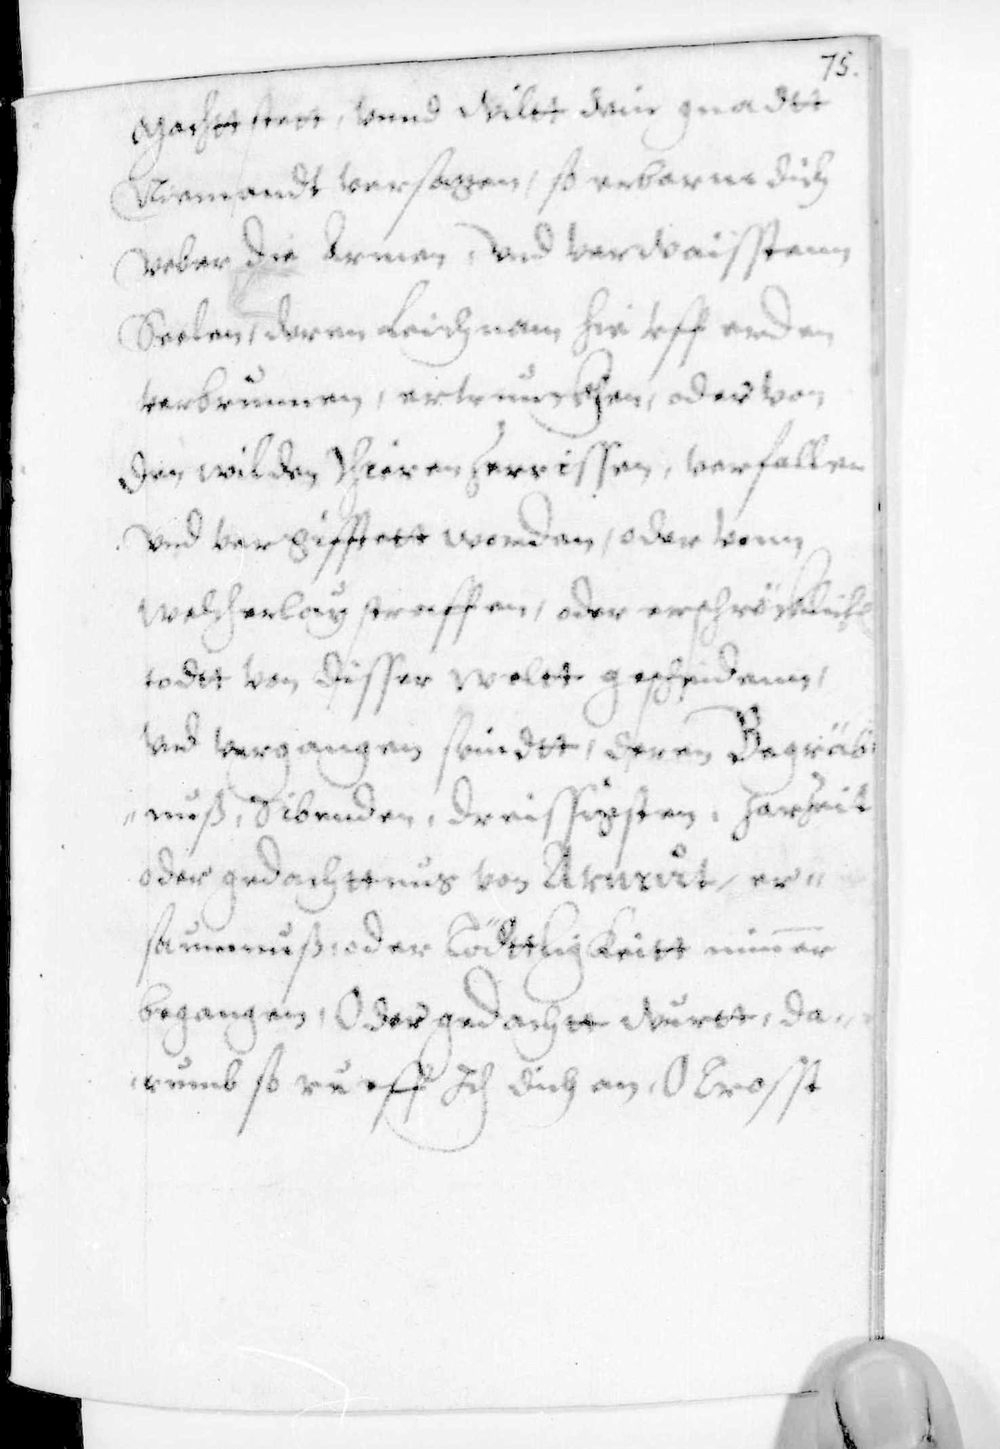 75.
Machtt stett, vnnd Wiltt dein gnadtt
Niemandt versagen, so erbarme dich
veber die Armen, vnd verwaissten
Seelen, deren Leichnam hie vff erden
verbrunnen, ertrunckhen, oder von
den wilden Thieren zerrissen, verfallen
vnd vergifftett worden, oder vonn
welcherlay straffen, oder erschröckliche
todtt von disser weltt gescheidenn,
vnd vergangen seindtt, deren Begräb-
nuß, Sibenden, dreissigsten, Jarzeit
oder gedachttnus von Armůt, ver-
saumnuß, oder Lödttligkeitt nim̅er
begangen, Oder gedachtt wurtt, da-
rumb so rueff Ich dich an, O Trosst